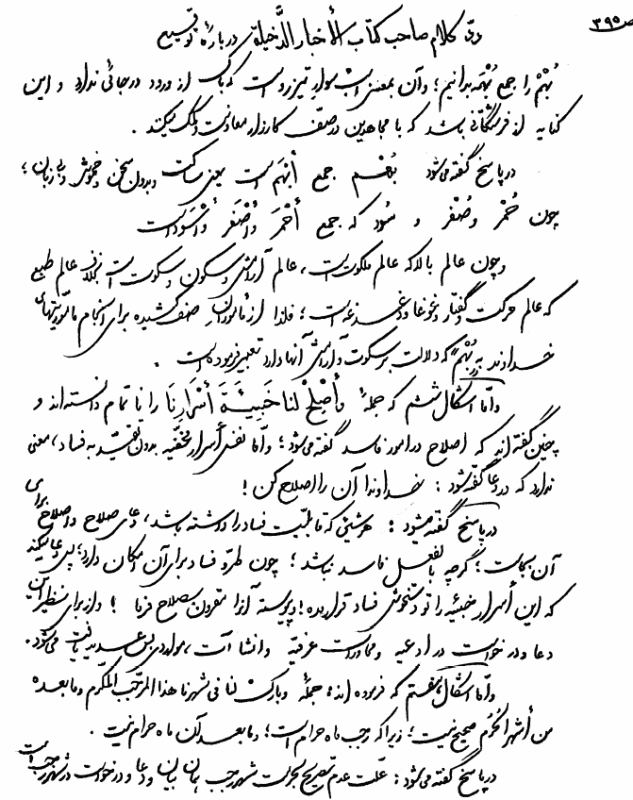 ص ۳۹۵
رد کلام صاحب کتاب الأخبار الدخیلة درباره توقیع
بُهْم را جمع بُهْمَه بدانیم؛ و آن بمعنی اسب سوار تیزرو است که باک از ورود در جائی ندارد و این
کنایه از فرشتگانی باشد که با مجاهدین در صف کارزار معاونت و کمک میکنند.
در پاسخ گفته می‌شود بُهْم جمع أبْهَم است یعنی ساکت و بدون سخن و خموش و بی زبان؛
چون حُمْر و صُفْر و سُود که جمع أحْمَر و أصْفَر و أسْوَد است
و چون عالم بالا که عالم ملکوت است، عالم آرامش و سکون و سکوت است بخلاف عالم طبع
که عالم حرکت و گفتار و غوغا و دغدغه است؛ فلذا از مأموران صف کشیده برای انجام مأموریتهای
خداوند به "بُهْم" که دلالت بر سکوت و آرامش آنها دارد تعبیر فرموده است.
و أما اشکال ششم که جملهٔ وأصْلِحْ لَنا خَبِیئَةَ أسْرارِنَا را ناتمام دانسته‌اند و
چنین گفته‌اند که اصلاح در امور فاسد گفته می‌شود؛ و أما نفس أسرار مخفیه بودن تقیّد به فساد، معنی
ندارد که در دعا گفته شود: خداوندا آن را اصلاح کن!
در پاسخ گفته میشود: هر شیئی که قابلیت فساد را داشته باشد، دعای صلاح و اصلاح برای
آن بجاست؛ گرچه بالفعل فاسد نباشد؛ چون طروّ فساد برای آن امکان دارد؛ پس دعا میکند
که این أسرار خبیئه را تو دستخوش فساد قرار مده! و پیوسته آنرا مقرون بصلاح فرما! و از برای نظیر این
دعا و درخواست در ادعیه و محاورات عرفیّه و انشاآت، مواردی بس عدیده یافت می‌شود.
و أما اشکال هفتم که فرموده‌اند: جملهٔ وبارِک لنا فی شهرنا هذا المرجّب المکرّم وما بعده
من أشهر الحُرُم صحیح نیست؛ زیرا که رجب ماه حرام است؛ و ما بعد آن ماه حرام نیست.
در پاسخ گفته می‌شود: علّت عدم تصریح بحرمت شهر رجب همان بیان و دعا و درخواست در شهر رجب است